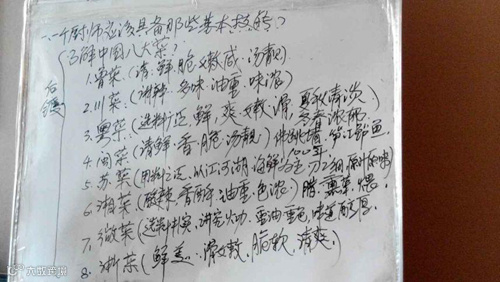 一个厨师应该具备那些基本技能？
了解中国八大菜？
后镘
1.鲁菜（清.鲜.脆.嫩.咸.汤靓）
2.川菜.（讲辣.多味.油重.味浓）
3.粤菜（选料广泛.鲜.爽.嫩.滑.夏秋清淡
冬春浓郁
4.闽菜（清鲜.香.脆.汤靓）佛跳墙.
5.苏菜（用料广泛.以江河湖.海鲜为主.刀工细.原汁原味
6.湘菜（酸辣.香鲜.油重.色浓）腊.熏.煨.
7.徽菜（选料.讲究火功.重油重色.味道醇厚.
8.浙菜（鲜美.滑嫩.脆软.清爽.